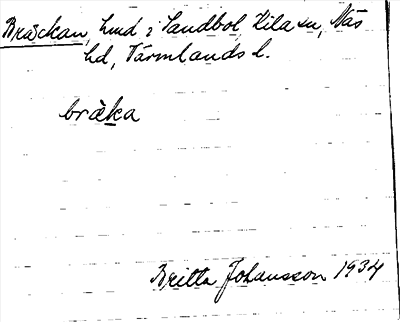 Bräckan, hmd i Sandbol, Kila sn, Näs
hd, Värmlands l.
bràka
Britta Johansson 1934